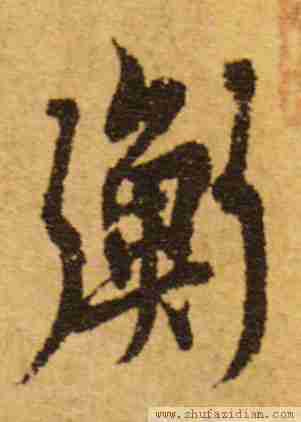 衡
www.shufazidian.com